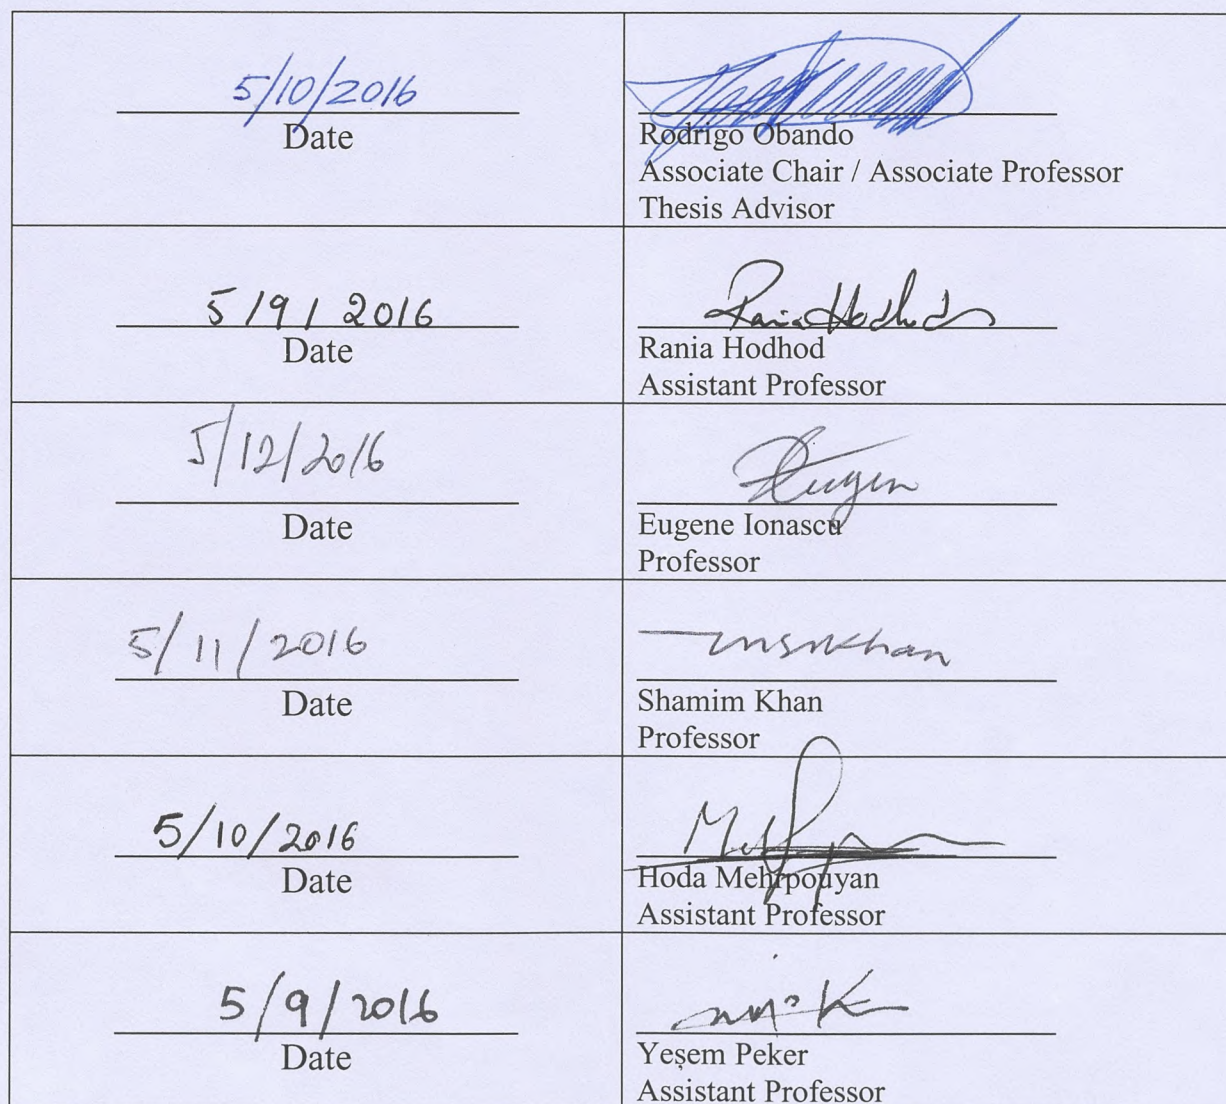 5/10/2016
Date
Rodrigo Obando
Associate Chair / Associate Professor
Thesis Advisor
5/9/2016
Rania Hodhod
Date
Rania Hodhod
Assistant Professor
5/12/2016
Eugen
Date
Eugene Ionascu
Professor
5/11/2016
Khan
Date
Shamim Khan
Professor
5/10/2016
Date
Hoda Mehrpouyan
Assistant Professor
5/9/2016
Date
Yeşem Peker
Assistant Professor